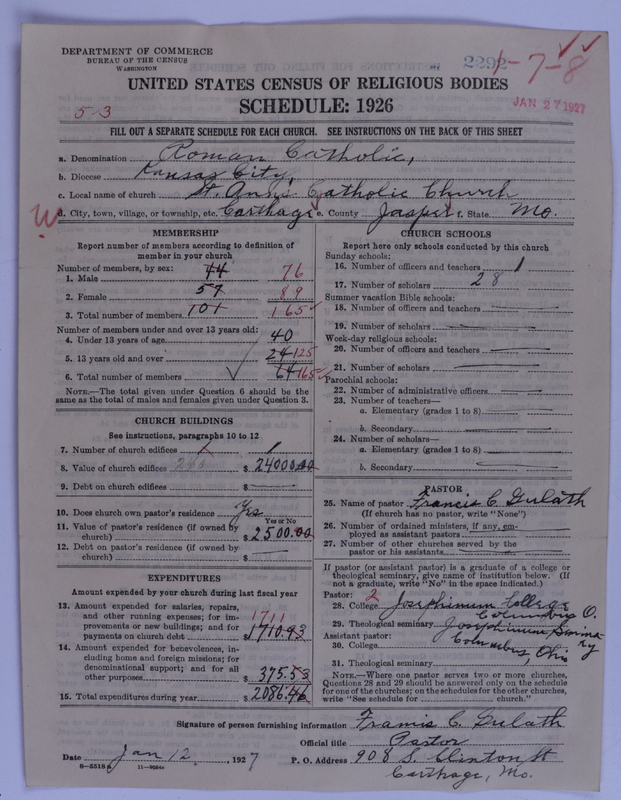 DEPARTMENT OF COMMERCE
BUREAU OF THE CENSUS
WASHINGTON
2292
1-7-8
UNITED STATES CENSUS OF RELIGIOUS BODIES
SCHEDULE: 1926
JAN 27 1927
5-3
FILL OUT A SEPARATE SCHEDULE FOR EACH CHURCH. SEE INSTRUCTIONS ON THE BACK OF THIS SHEET
a. Denomination Roman Catholic,
b. Diocese Kansas City,
c. Local name of church St. Ann's Catholic Church
d. City, town, village, or township, etc. Carthage e. County Jasper f. State Mo.
MEMBERSHIP
Report number of members according to definition of
member in your church
Number of members, by sex:
1. Male 44 76
2. Female 57 89
3. Total number of members 101 165
Number of members under and over 13 years old:
4. Under 13 years of age 40
5. 13 years old and over 24 125
6. Total number of members 64 165
NOTE.—The total given under Question 6 should be the
same as the total of males and females given under Question 3.
CHURCH BUILDINGS
See instructions, paragraphs 10 to 12
7. Number of church edifices 1
8. Value of church edifices $ 24000.00
9. Debt on church edifices $
10. Does church own pastor's residence Yes
Yes or No
11. Value of pastor's residence (if owned by
church) $ 2500.00
12. Debt on pastor's residence (if owned by
church) $
EXPENDITURES
Amount expended by your church during last fiscal year
13. Amount expended for salaries, repairs,
and other running expenses; for im- 1711
provements or new buildings; and for
payments on church debt $ 1710.93
14. Amount expended for benevolences, in-
cluding home and foreign missions; for
denominational support; and for all
other purposes $ 375.53
15. Total expenditures during year $ 2086.46
CHURCH SCHOOLS
Report here only schools conducted by this church
Sunday schools:
16. Number of officers and teachers 1
17. Number of scholars 28
Summer vacation Bible schools:
18. Number of officers and teachers
19. Number of scholars
Week-day religious schools:
20. Number of officers and teachers
21. Number of scholars
Parochial schools:
22. Number of administrative officers
23. Number of teachers—
a. Elementary (grades 1 to 8)
b. Secondary
24. Number of scholars—
a. Elementary (grades 1 to 8)
b. Secondary
PASTOR
25. Name of pastor Francis C. Gulath
(If church has no pastor, write "None")
26. Number of ordained ministers, if any, em-
ployed as assistant pastors
27. Number of other churches served by the
pastor or his assistants
If pastor (or assistant pastor) is a graduate of a college or
theological seminary, give name of institution below. (If
not a graduate, write "No" in the space indicated.)
Pastor: 2
28. College Josephinum College
Columbus O.
29. Theological seminary Josephinum Seminary
Assistant pastor:
30. College Columbus, Ohio
31. Theological seminary
NOTE.—Where one pastor serves two or more churches,
Questions 28 and 29 should be answered only on the schedule
for one of the churches; on the schedules for the other churches,
write "See schedule for church."
Signature of person furnishing information Francis C. Gulath
Official title Pastor
Date Jan 12, 1927 P. O. Address 908 S. Clinton St
8-5518a 11-9024a
Carthage, Mo.